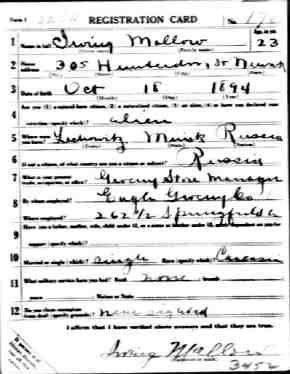 Form 1
REGISTRATION CARD
No.
1 Name in full Irving Mallow
Age, in yrs.
23
2 Home address 305 Hunterdon St Newark
3 Date of birth Oct 18 1894
(Month) (Day) (Year)
4 Are you (1) a natural-born citizen, (2) a naturalized citizen, (3) an alien, (4) or have you declared your
intention (specify which)? alien
5 Where were you born? Minsk Russia
6 If not a citizen, of what country are you a citizen or subject? Russia
7 What is your present trade, occupation, or office? Grocery Store Manager
8 By whom employed? Eagle Grocery Co
Where employed? 262 1/2 Springfield
9 Have you a father, mother, wife, child under 12, or a sister or brother under 12, solely dependent on you for
support (specify which)?
10 Married or single (which)? single Race (specify which)? Caucasian
11 What military service have you had? Rank none branch
years Nation or State
12 Do you claim exemption from draft (specify grounds)?
I affirm that I have verified above answers and that they are true.
Irving Mallow
3452